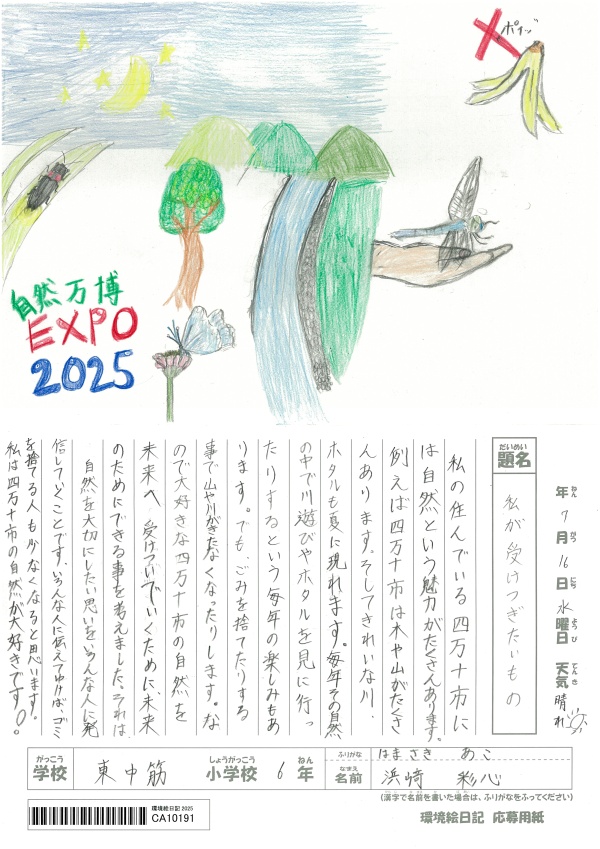 ポイッ
自然万博
EXPO
2025
だいめい
題名
私が受けつぎたいもの
年 7月 16日 水曜日 天気 晴れ
ねん がつ にち ようび てんき
私の住んでいる四万十市に
は自然という魅力がたくさんあります。
例えば四万十市は木や山がたくさ
んあります。そしてきれいな川、
ホタルも夏に現れます。毎年その自然
の中で川遊びやホタルを見に行っ
たりするという毎年の楽しみもあ
ります。でも、ごみを捨てたりする
事で山や川がきたなくなったりします。な
ので大好きな四万十市の自然を
未来へ受けついでいくために、未来
のためにできる事を考えました。それは
自然を大切にしたい思いをいろんな人に発
信していくことです。いろんな人に伝えてゆけば、ゴミ
を捨てる人も少なくなると思います。
私は四万十市の自然が大好きです!!
がっこう しょうがっこう ねん
学校 東中筋 小学校 6年
ふりがな はまさき あこ
なまえ
名前 浜崎 彩心
(漢字で名前を書いた場合は、ふりがなをふってください)
環境絵日記 2025
CA10191
環境絵日記 応募用紙